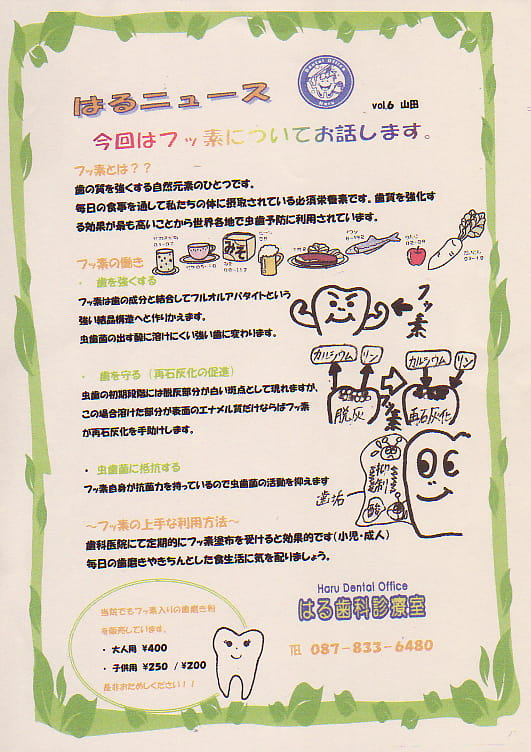 はるニュース
Dental Office
Haru
vol.6 山田
今回はフッ素についてお話します。
フッ素とは??
歯の質を強くする自然元素のひとつです。
毎日の食事を通して私たちの体に摂取されている必須栄養素です。歯質を強化す
る効果が最も高いことから世界各地で虫歯予防に利用されています。
みそ
フッ素の働き
・ 歯を強くする
フッ素は歯の成分と結合してフルオルアパタイトという
強い結晶構造へと作りかえます。
虫歯菌の出す酸に溶けにくい強い歯に変わります。
フッ素
・ 歯を守る(再石灰化の促進)
虫歯の初期段階には脱灰部分が白い斑点として現れますが、
この場合溶けた部分が表面のエナメル質だけならばフッ素
が再石灰化を手助けします。
カルシウム
リン
カルシウム
リン
脱灰
フッ素
再石灰化
・ 虫歯菌に抵抗する
フッ素自身が抗菌力を持っているので虫歯菌の活動を抑えます
歯垢
酸
～フッ素の上手な利用方法～
歯科医院にて定期的にフッ素塗布を受けると効果的です(小児・成人)
毎日の歯磨きやきちんとした食生活に気を配りましょう。
当院でもフッ素入りの歯磨き粉
を販売しています。
・ 大人用 ¥400
・ 子供用 ¥250 / ¥200
是非おためしください!!
Haru Dental Office
はる歯科診療室
TEL 087-833-6480